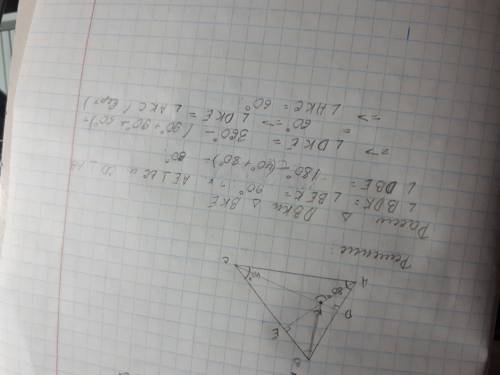 B
D
E
K
A
80°
40°
C
Решение:
Рассм △ DBK и △ BKE
∠ BDK = ∠ BEK = 90°, т.к. AE ⊥ BC и CD ⊥ AB
∠ DBE = 180° - (40° + 80°) = 60°
=> ∠ DKE = 360° - (90° + 90° + 60°) =
= 60° => ∠ DKE = ∠ AKC (верт)
=> ∠ AKC = 60°.